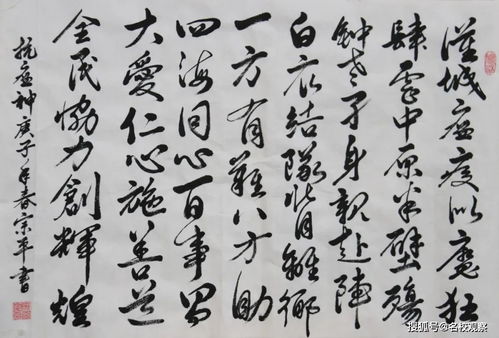 漢城瘟疫似魔狂
肆虐中原半壁殤
鈡老孑身親赴陣
白衣結隊皆離鄉
一方有難八方助
四海同心百事昌
大愛仁心施善道
全民協力創輝煌
抗瘟神庚子年春宗平書
搜狐号@名校观察